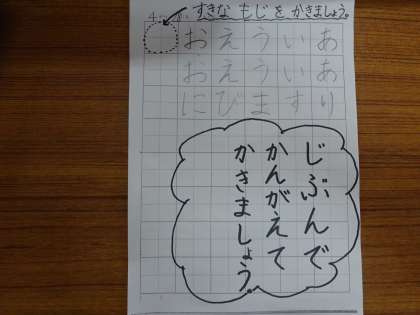 すきな もじを かきましょう。
あいうえお
あいうえお
りすまびに
じぶんで
かんがえて
かきましょう。